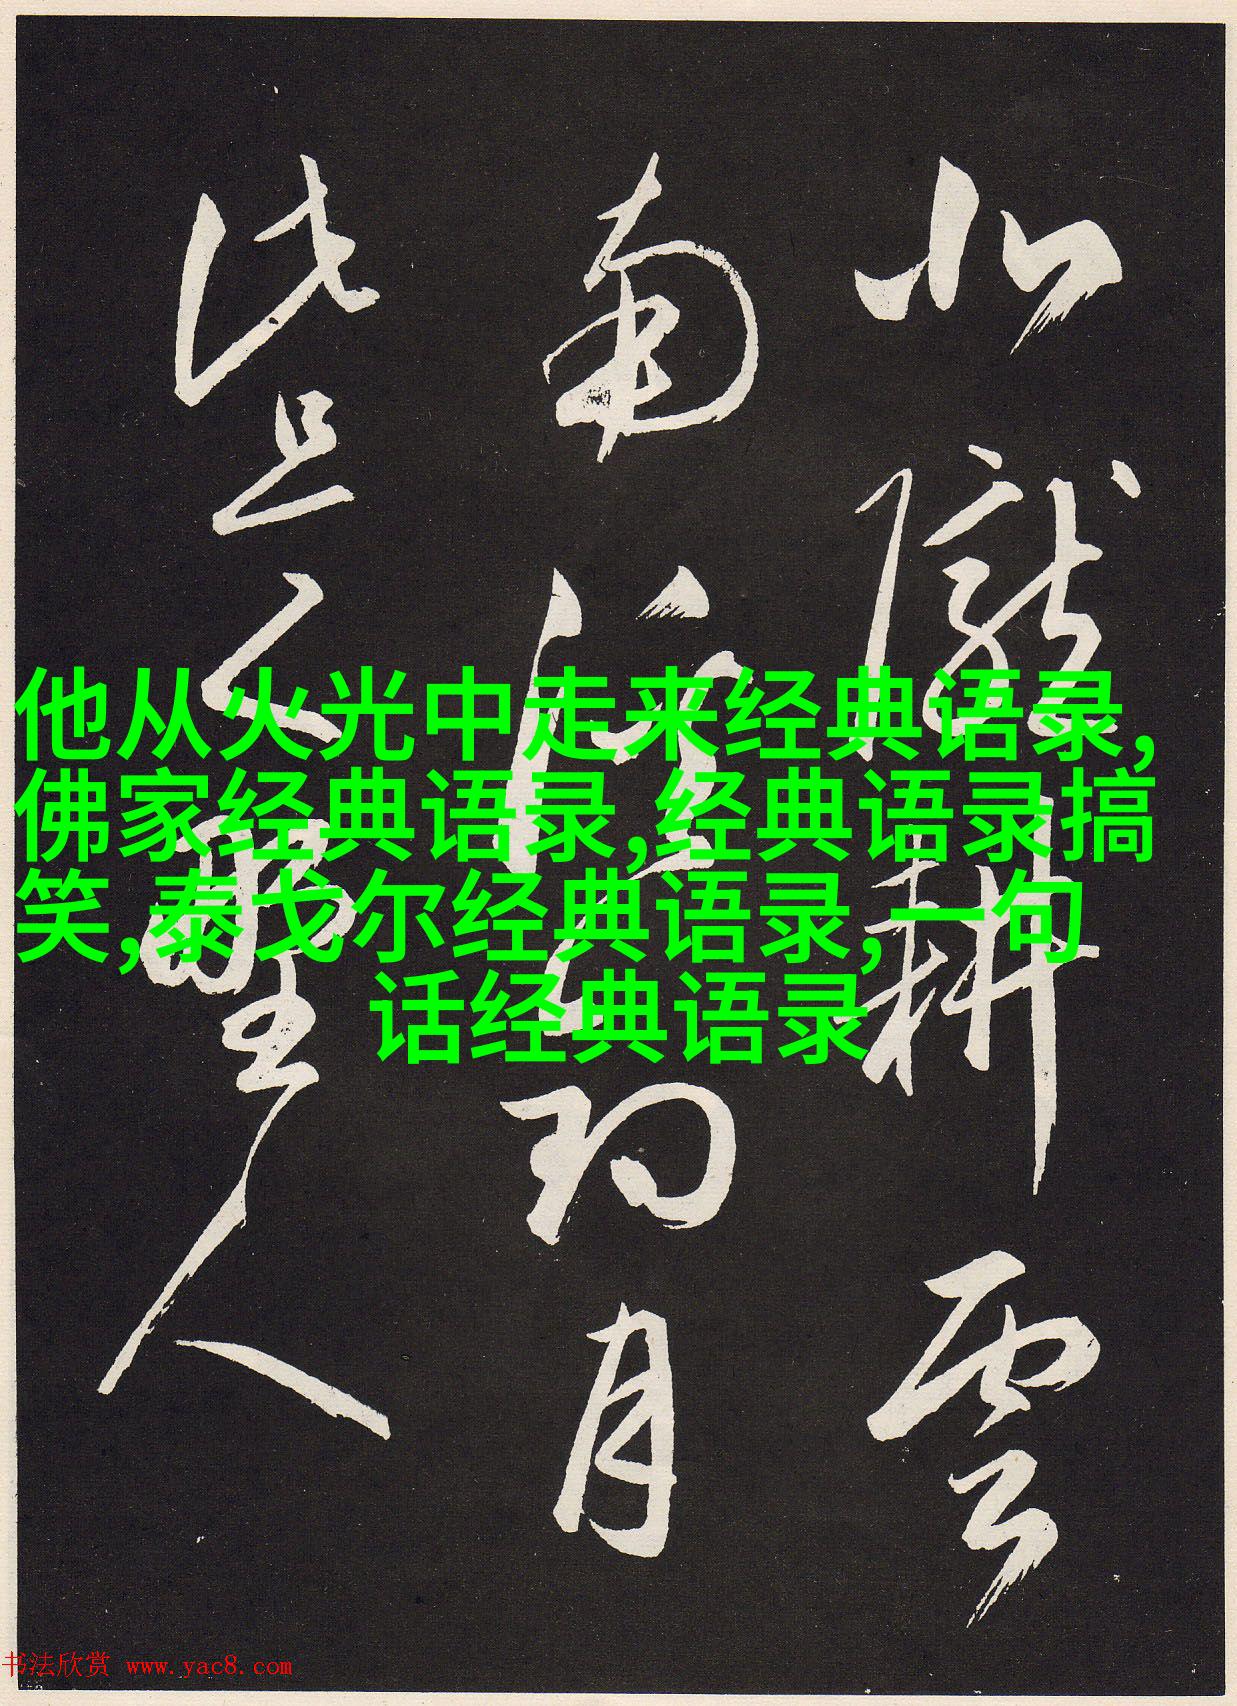 北隴耕雲
南溪釣月
此是野人
他从火光中走来经典语录,
佛家经典语录,经典语录搞
笑,泰戈尔经典语录,一句
话经典语录
书法欣赏 www.yac8.com